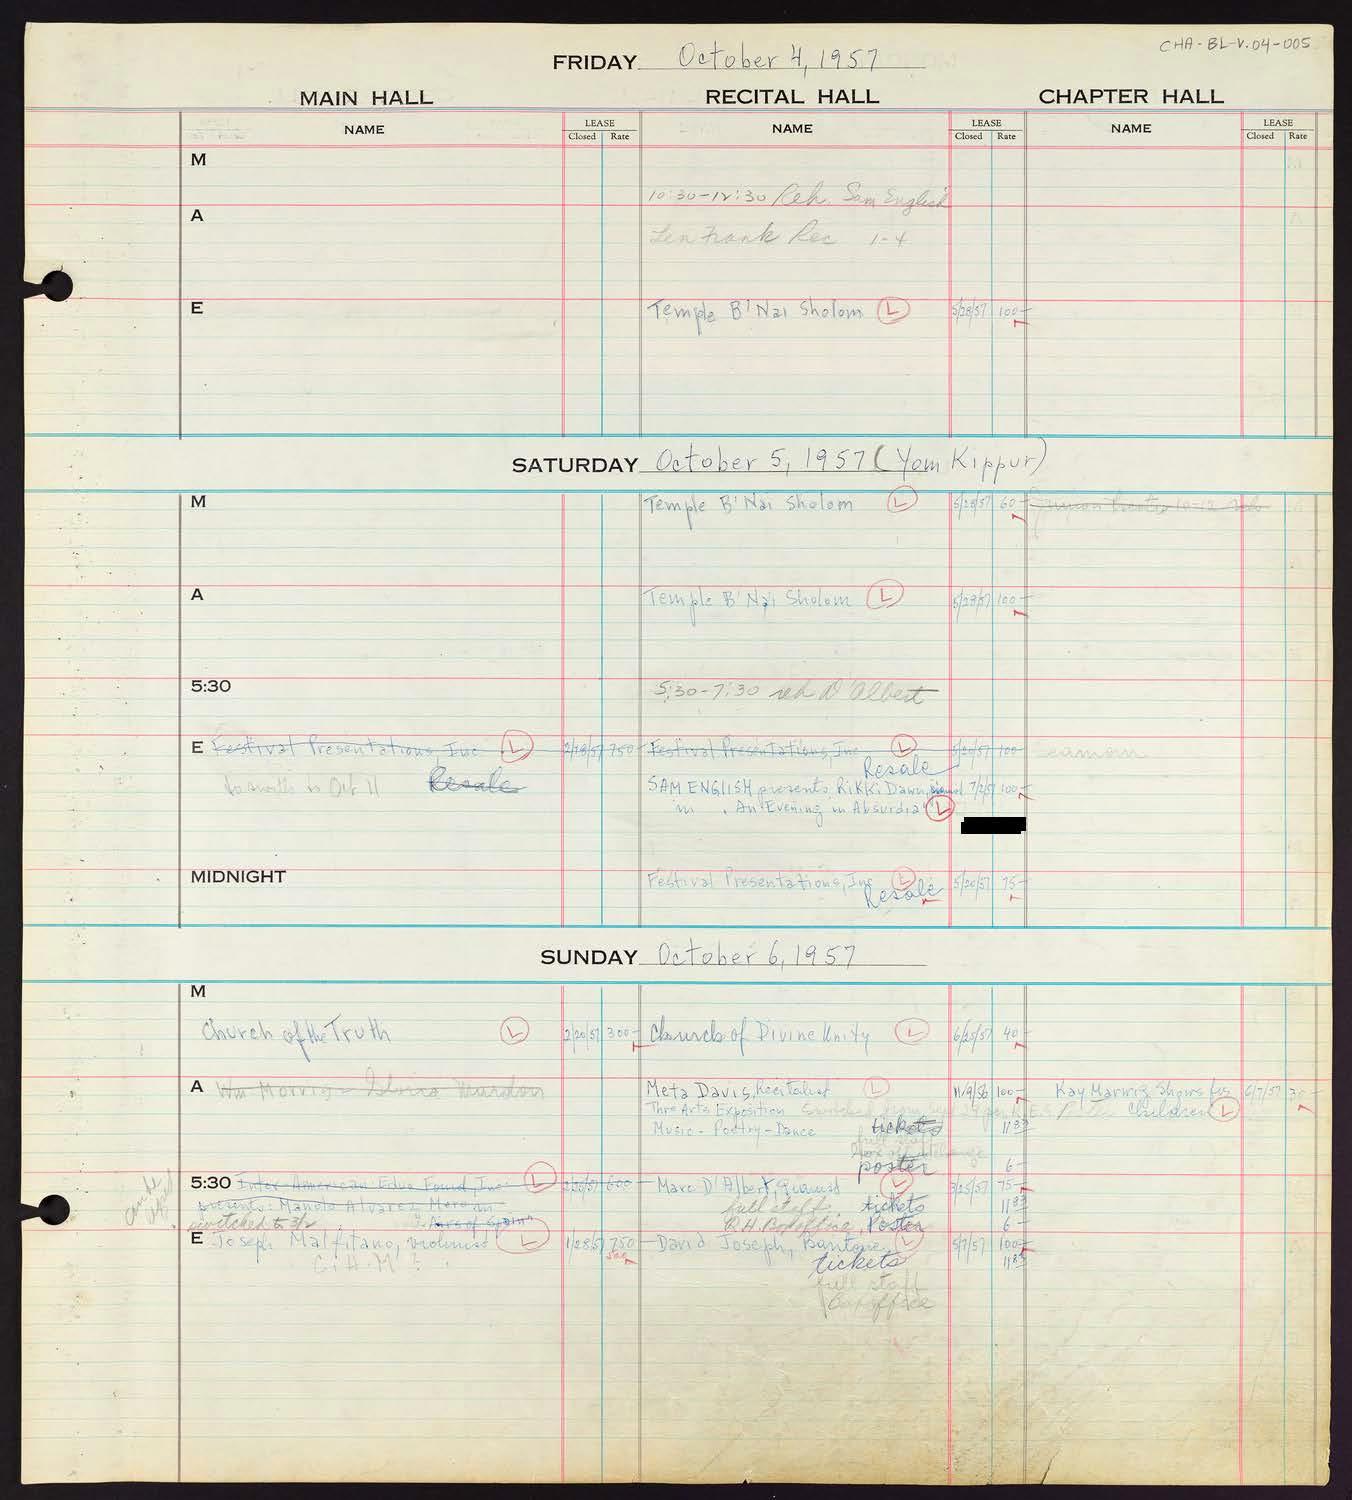 CHA-BL-V.04-005
FRIDAY October 4, 1957
MAIN HALL RECITAL HALL CHAPTER HALL
NAME LEASE Closed Rate NAME LEASE Closed Rate NAME LEASE Closed Rate
M
10:30-12:30 Reh. Sam English
A
Len Frank Rec 1-4
E Temple B'Nai Sholom L 5/28/57 100-
SATURDAY October 5, 1957 (Yom Kippur)
M Temple B'Nai Sholom L 5/28/57 60- 10-12
A Temple B'Nai Sholom L 5/28/57 100-
5:30 5:30-7:30 reh D'Albert
E Festival Presentations, Inc L 2/18/57 750- Festival Presentations, Inc. L 5/20/57 100-
to Oct 11 Resale Resale
SAM ENGlISH presents RiKKi Dawn, 7/2/57 100-
in An Evening in Absurdia" L
MIDNIGHT Festival Presentations, Inc L 5/20/57 75-
Resale
SUNDAY October 6, 1957
M
Church of the Truth L 2/20/57 300- Church of Divine Unity L 6/25/57 40-
A Wm Morris - Gloria Meta Davis, Recitalist L 11/9/56 100- Kay Marwig Shows for 6/7/57 30-
Thre Arts Exposition Switched from Children L
Music - Poetry - Dance tickets 11 83
full staff
box office
poster 6-
5:30 Inter-American Educ Found, Inc L 600- Marc D'Albert, pianist L 3/25/57 75-
presents: Manolo Alvarez Mera in full staff, tickets 11 83
switched to 3/2 "Airs of Spain" R.H. Boxoffice, Poster 6-
E Joseph Malfitano, violinist L 1/28/57 750 David Joseph, Baritone L 5/7/57 100-
C.H.M. 500 tickets 11 83
full staff
Boxoffice